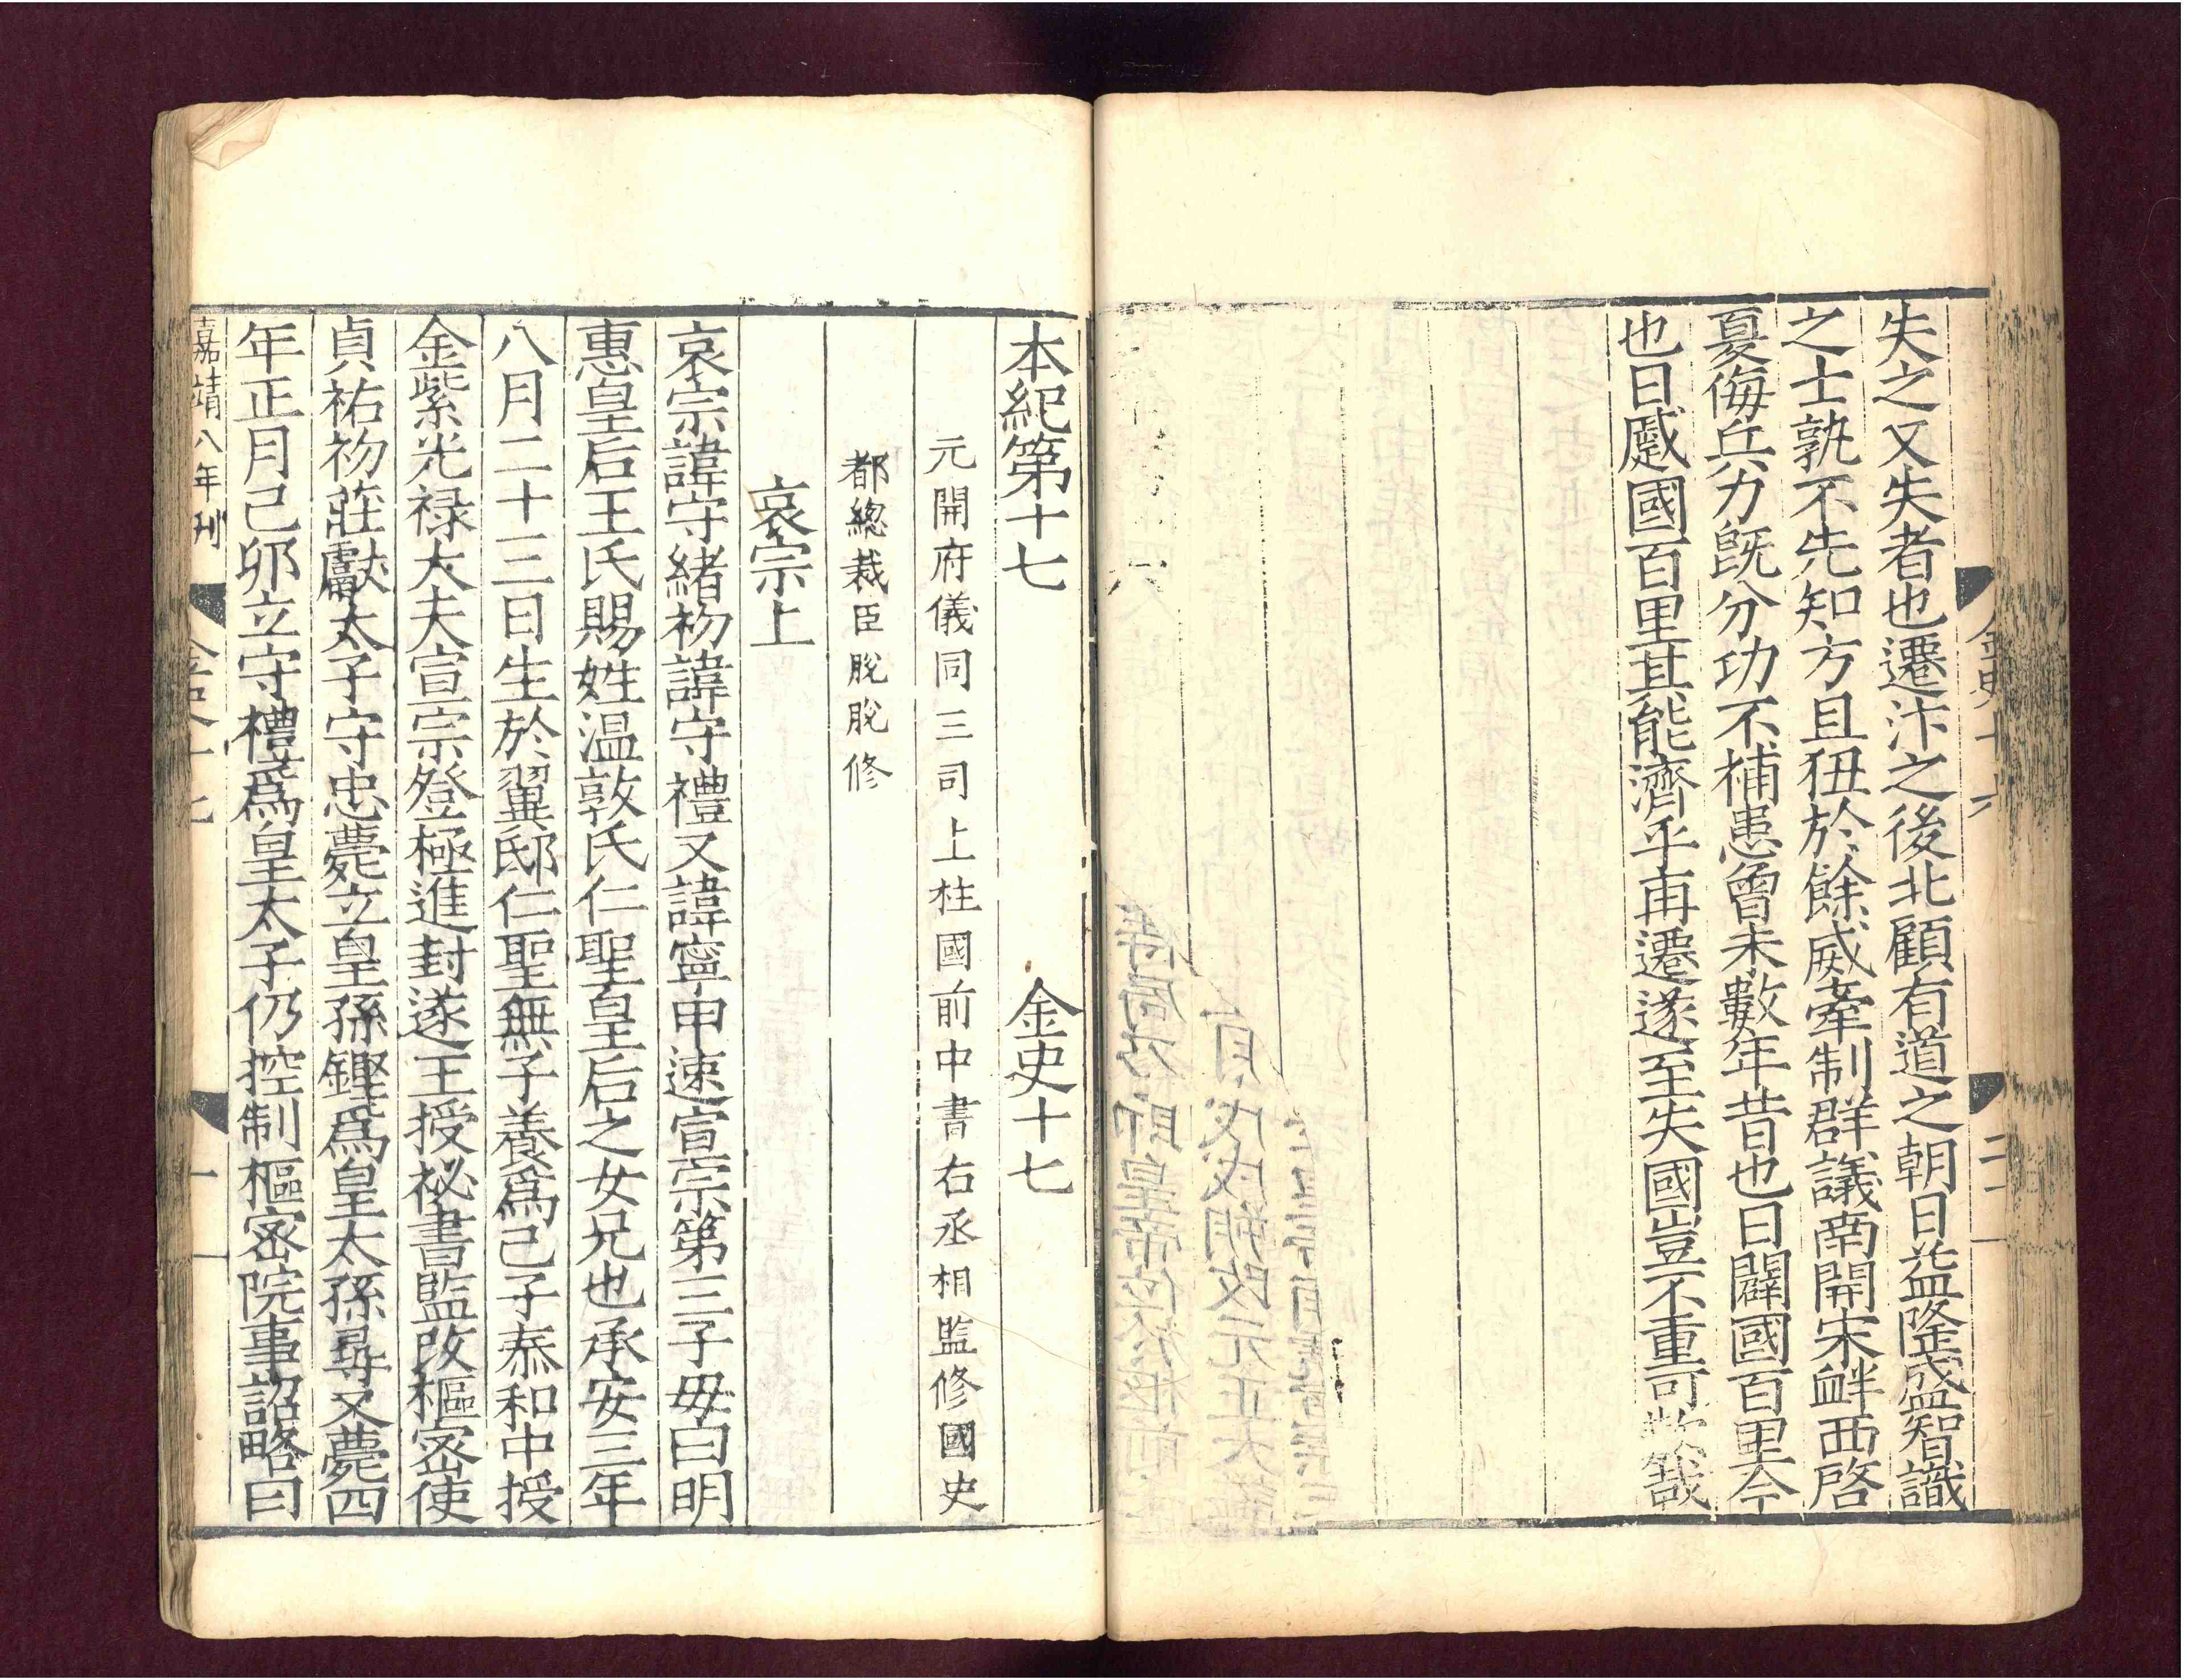 失之又失者也遷汴之後北顧有道之朝日益隆盛智識
之士孰不先知方且狃於餘威牽制群議南開宋衅西啓
夏侮兵力旣分功不補患曾未數年昔也日闢國百里今
也日蹙國百里其能濟乎再遷遂至失國豈不重可歎哉
本紀第十七 金史十七
元開府儀同三司上柱國前中書右丞相監修國史
都總裁臣脫脫修
哀宗上
哀宗諱守緒初諱守禮又諱寧甲速宣宗第三子母曰明
惠皇后王氏賜姓温敦氏仁聖皇后之女兄也承安三年
八月二十三日生於翼邸仁聖無子養爲己子泰和中授
金紫光祿大夫宣宗登極進封遂王授祕書監改樞密使
貞祐初莊獻太子守忠薨立皇孫鏗爲皇太孫尋又薨四
年正月己卯立守禮爲皇太子仍控制樞密院事詔略曰
嘉靖八年刊 金史十七 一